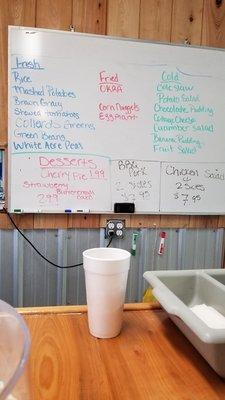 Fresh
Rice
Mashed Potatoes
Brown Gravy
Stewed Tomatoes
Collards Greens
Green Beans
White Acre Peas
Fried
OKRA
Corn Nuggets
Eggplant
Cold
Coleslaw
Potato Salad
Chocolate Pudding
Cottage Cheese
Cucumber Salad
Banana Pudding
Fruit Salad
Desserts
Cherry Pie 1.99
Strawberry
Buttercream
2.99
BBQ
2 Sides
Chicken Salad
2 Sides
$7.95